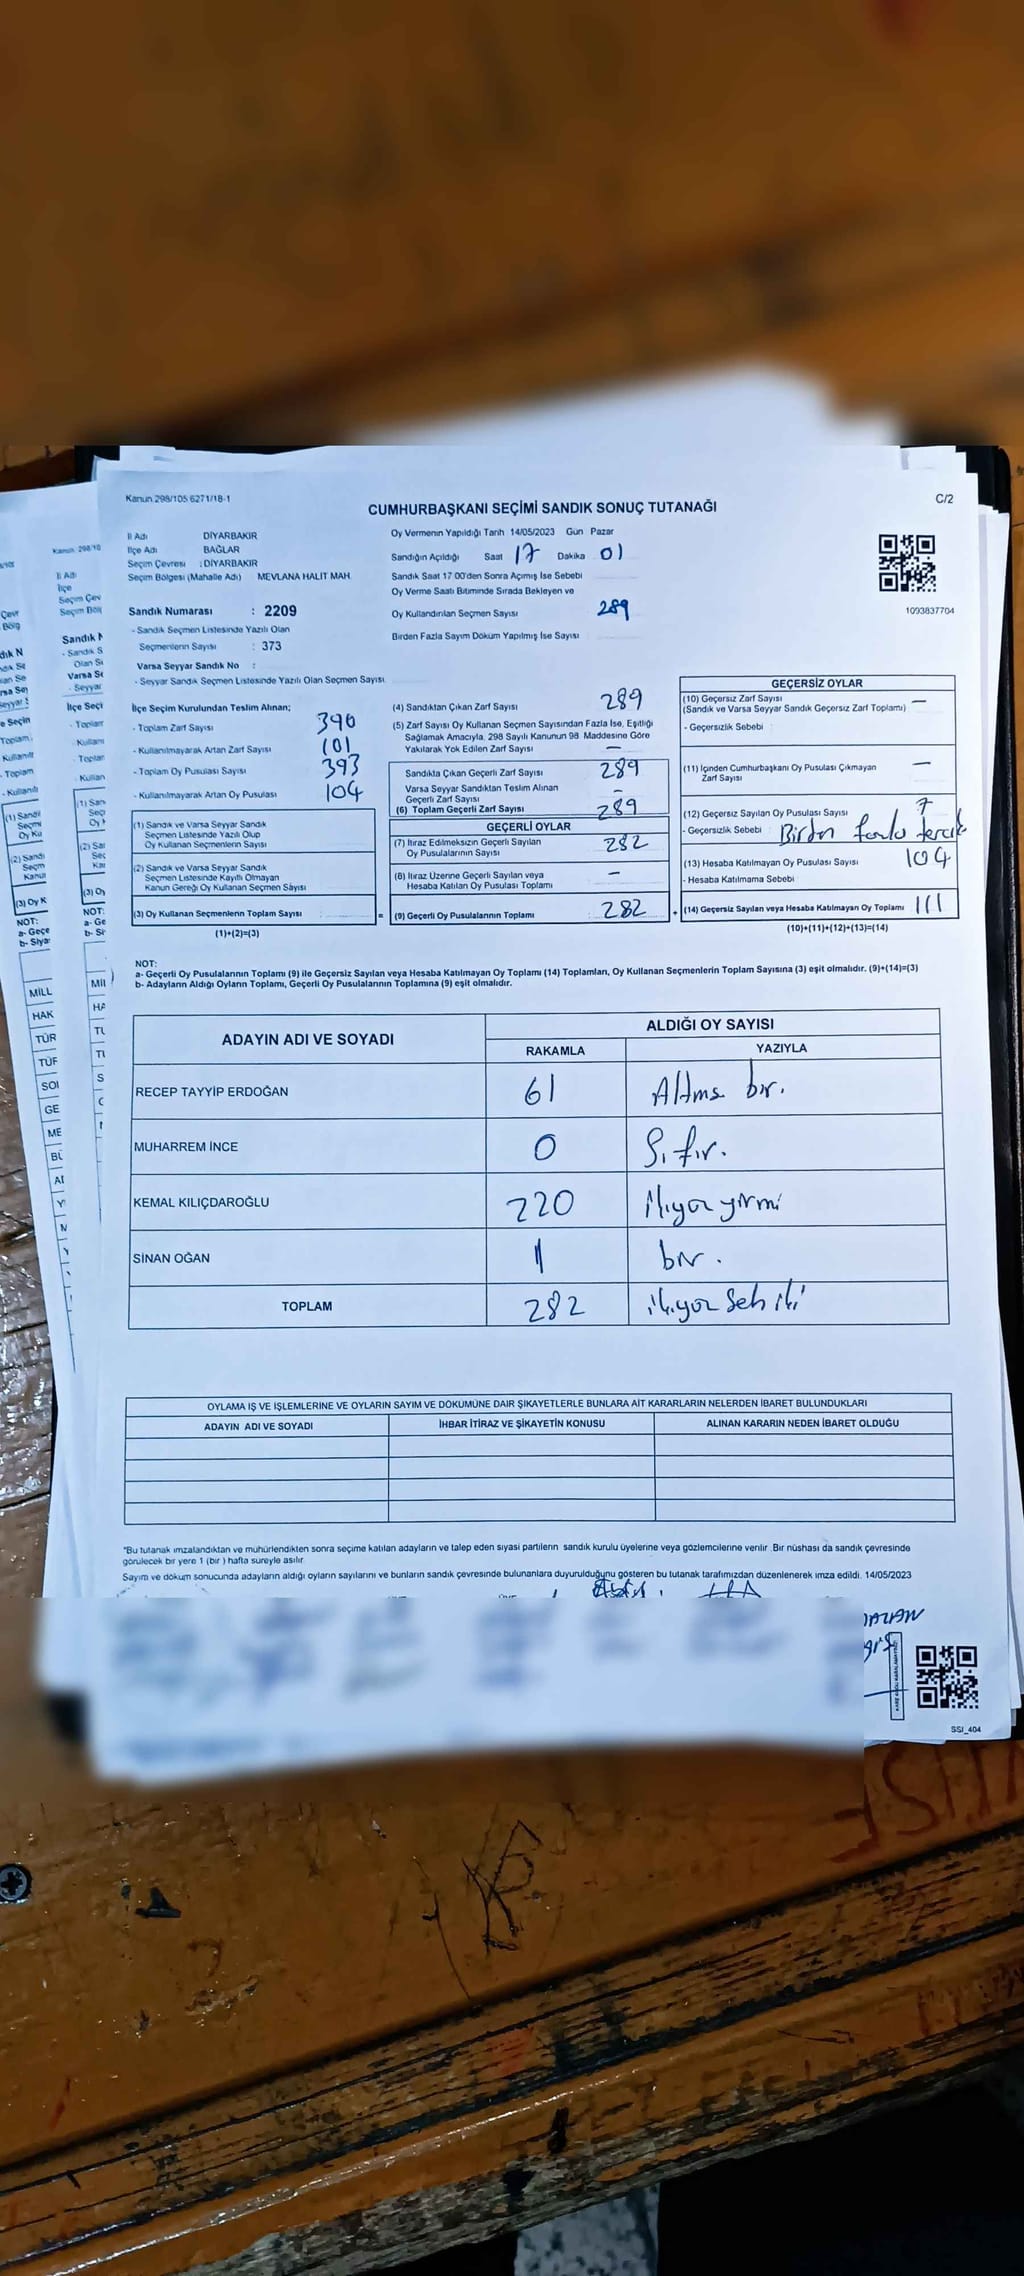 Kanun 298/105 6271/18-1
C/2
CUMHURBAŞKANI SEÇİMİ SANDIK SONUÇ TUTANAĞI
İl Adı DİYARBAKIR
İlçe Adı BAĞLAR
Seçim Çevresi : DİYARBAKIR
Seçim Bölgesi (Mahalle Adı) MEVLANA HALIT MAH.
Sandık Numarası : 2209
- Sandık Seçmen Listesinde Yazılı Olan
Seçmenlerin Sayısı : 373
Varsa Seyyar Sandık No :
- Seyyar Sandık Seçmen Listesinde Yazılı Olan Seçmen Sayısı
Oy Vermenin Yapıldığı Tarih 14/05/2023 Gün Pazar
Sandığın Açıldığı Saat 17 Dakika 01
Sandık Saat 17 00'den Sonra Açımış İse Sebebi
Oy Verme Saati Bitiminde Sırada Bekleyen ve
Oy Kullandırılan Seçmen Sayısı 289
Birden Fazla Sayım Döküm Yapılmış İse Sayısı
1093837704
İlçe Seçim Kurulundan Teslim Alınan;
- Toplam Zarf Sayısı 390
- Kullanılmayarak Artan Zarf Sayısı 101
- Toplam Oy Pusulası Sayısı 393
- Kullanılmayarak Artan Oy Pusulası 104
(1) Sandık ve Varsa Seyyar Sandık
Seçmen Listesinde Yazılı Olup
Oy Kullanan Seçmenlerin Sayısı
(2) Sandık ve Varsa Seyyar Sandık
Seçmen Listesinde Kayıtlı Olmayan
Kanun Gereği Oy Kullanan Seçmen Sayısı
(3) Oy Kullanan Seçmenlerin Toplam Sayısı : =
(1)+(2)=(3)
(4) Sandıktan Çıkan Zarf Sayısı 289
(5) Zarf Sayısı Oy Kullanan Seçmen Sayısından Fazla İse, Eşitliği
Sağlamak Amacıyla, 298 Sayılı Kanunun 98. Maddesine Göre
Yakılarak Yok Edilen Zarf Sayısı —
Sandıkta Çıkan Geçerli Zarf Sayısı 289
Varsa Seyyar Sandıktan Teslim Alınan
Geçerli Zarf Sayısı –
(6) Toplam Geçerli Zarf Sayısı 289
GEÇERLİ OYLAR
(7) İtiraz Edilmeksizin Geçerli Sayılan
Oy Pusulalarının Sayısı 282
(8) İtiraz Üzerine Geçerli Sayılan veya
Hesaba Katılan Oy Pusulası Toplamı —
(9) Geçerli Oy Pusulalarının Toplamı : 282 +
GEÇERSİZ OYLAR
(10) Geçersiz Zarf Sayısı
(Sandık ve Varsa Seyyar Sandık Geçersiz Zarf Toplamı) —
- Geçersizlik Sebebi :
(11) İçinden Cumhurbaşkanı Oy Pusulası Çıkmayan
Zarf Sayısı —
(12) Geçersiz Sayılan Oy Pusulası Sayısı 7
- Geçersizlik Sebebi : Birden fazla tercih
(13) Hesaba Katılmayan Oy Pusulası Sayısı 104
- Hesaba Katılmama Sebebi
(14) Geçersiz Sayılan veya Hesaba Katılmayan Oy Toplamı 111
(10)+(11)+(12)+(13)=(14)
NOT:
a- Geçerli Oy Pusulalarının Toplamı (9) ile Geçersiz Sayılan veya Hesaba Katılmayan Oy Toplamı (14) Toplamları, Oy Kullanan Seçmenlerin Toplam Sayısına (3) eşit olmalıdır. (9)+(14)=(3)
b- Adayların Aldığı Oyların Toplamı, Geçerli Oy Pusulalarının Toplamına (9) eşit olmalıdır.
ADAYIN ADI VE SOYADI ALDIĞI OY SAYISI
RAKAMLA YAZIYLA
RECEP TAYYİP ERDOĞAN 61 Altmş bir.
MUHARREM İNCE 0 Sıfır.
KEMAL KILIÇDAROĞLU 220 ikiyüz yirmi
SİNAN OĞAN 1 bir.
TOPLAM 282 ikiyüz Sek iki
OYLAMA İŞ VE İŞLEMLERİNE VE OYLARIN SAYIM VE DÖKÜMÜNE DAİR ŞİKAYETLERLE BUNLARA AİT KARARLARIN NELERDEN İBARET BULUNDUKLARI
ADAYIN ADI VE SOYADI İHBAR İTİRAZ VE ŞİKAYETİN KONUSU ALINAN KARARIN NEDEN İBARET OLDUĞU
"Bu tutanak imzalandıktan ve mühürlendikten sonra seçime katılan adayların ve talep eden siyasi partilerin sandık kurulu üyelerine veya gözlemcilerine verilir. Bir nüshası da sandık çevresinde
görülecek bir yere 1 (bir) hafta süreyle asılır.
Sayım ve döküm sonucunda adayların aldığı oyların sayılarını ve bunların sandık çevresinde bulunanlara duyurulduğunu gösteren bu tutanak tarafımızdan düzenlenerek imza edildi. 14/05/2023
SSI_404